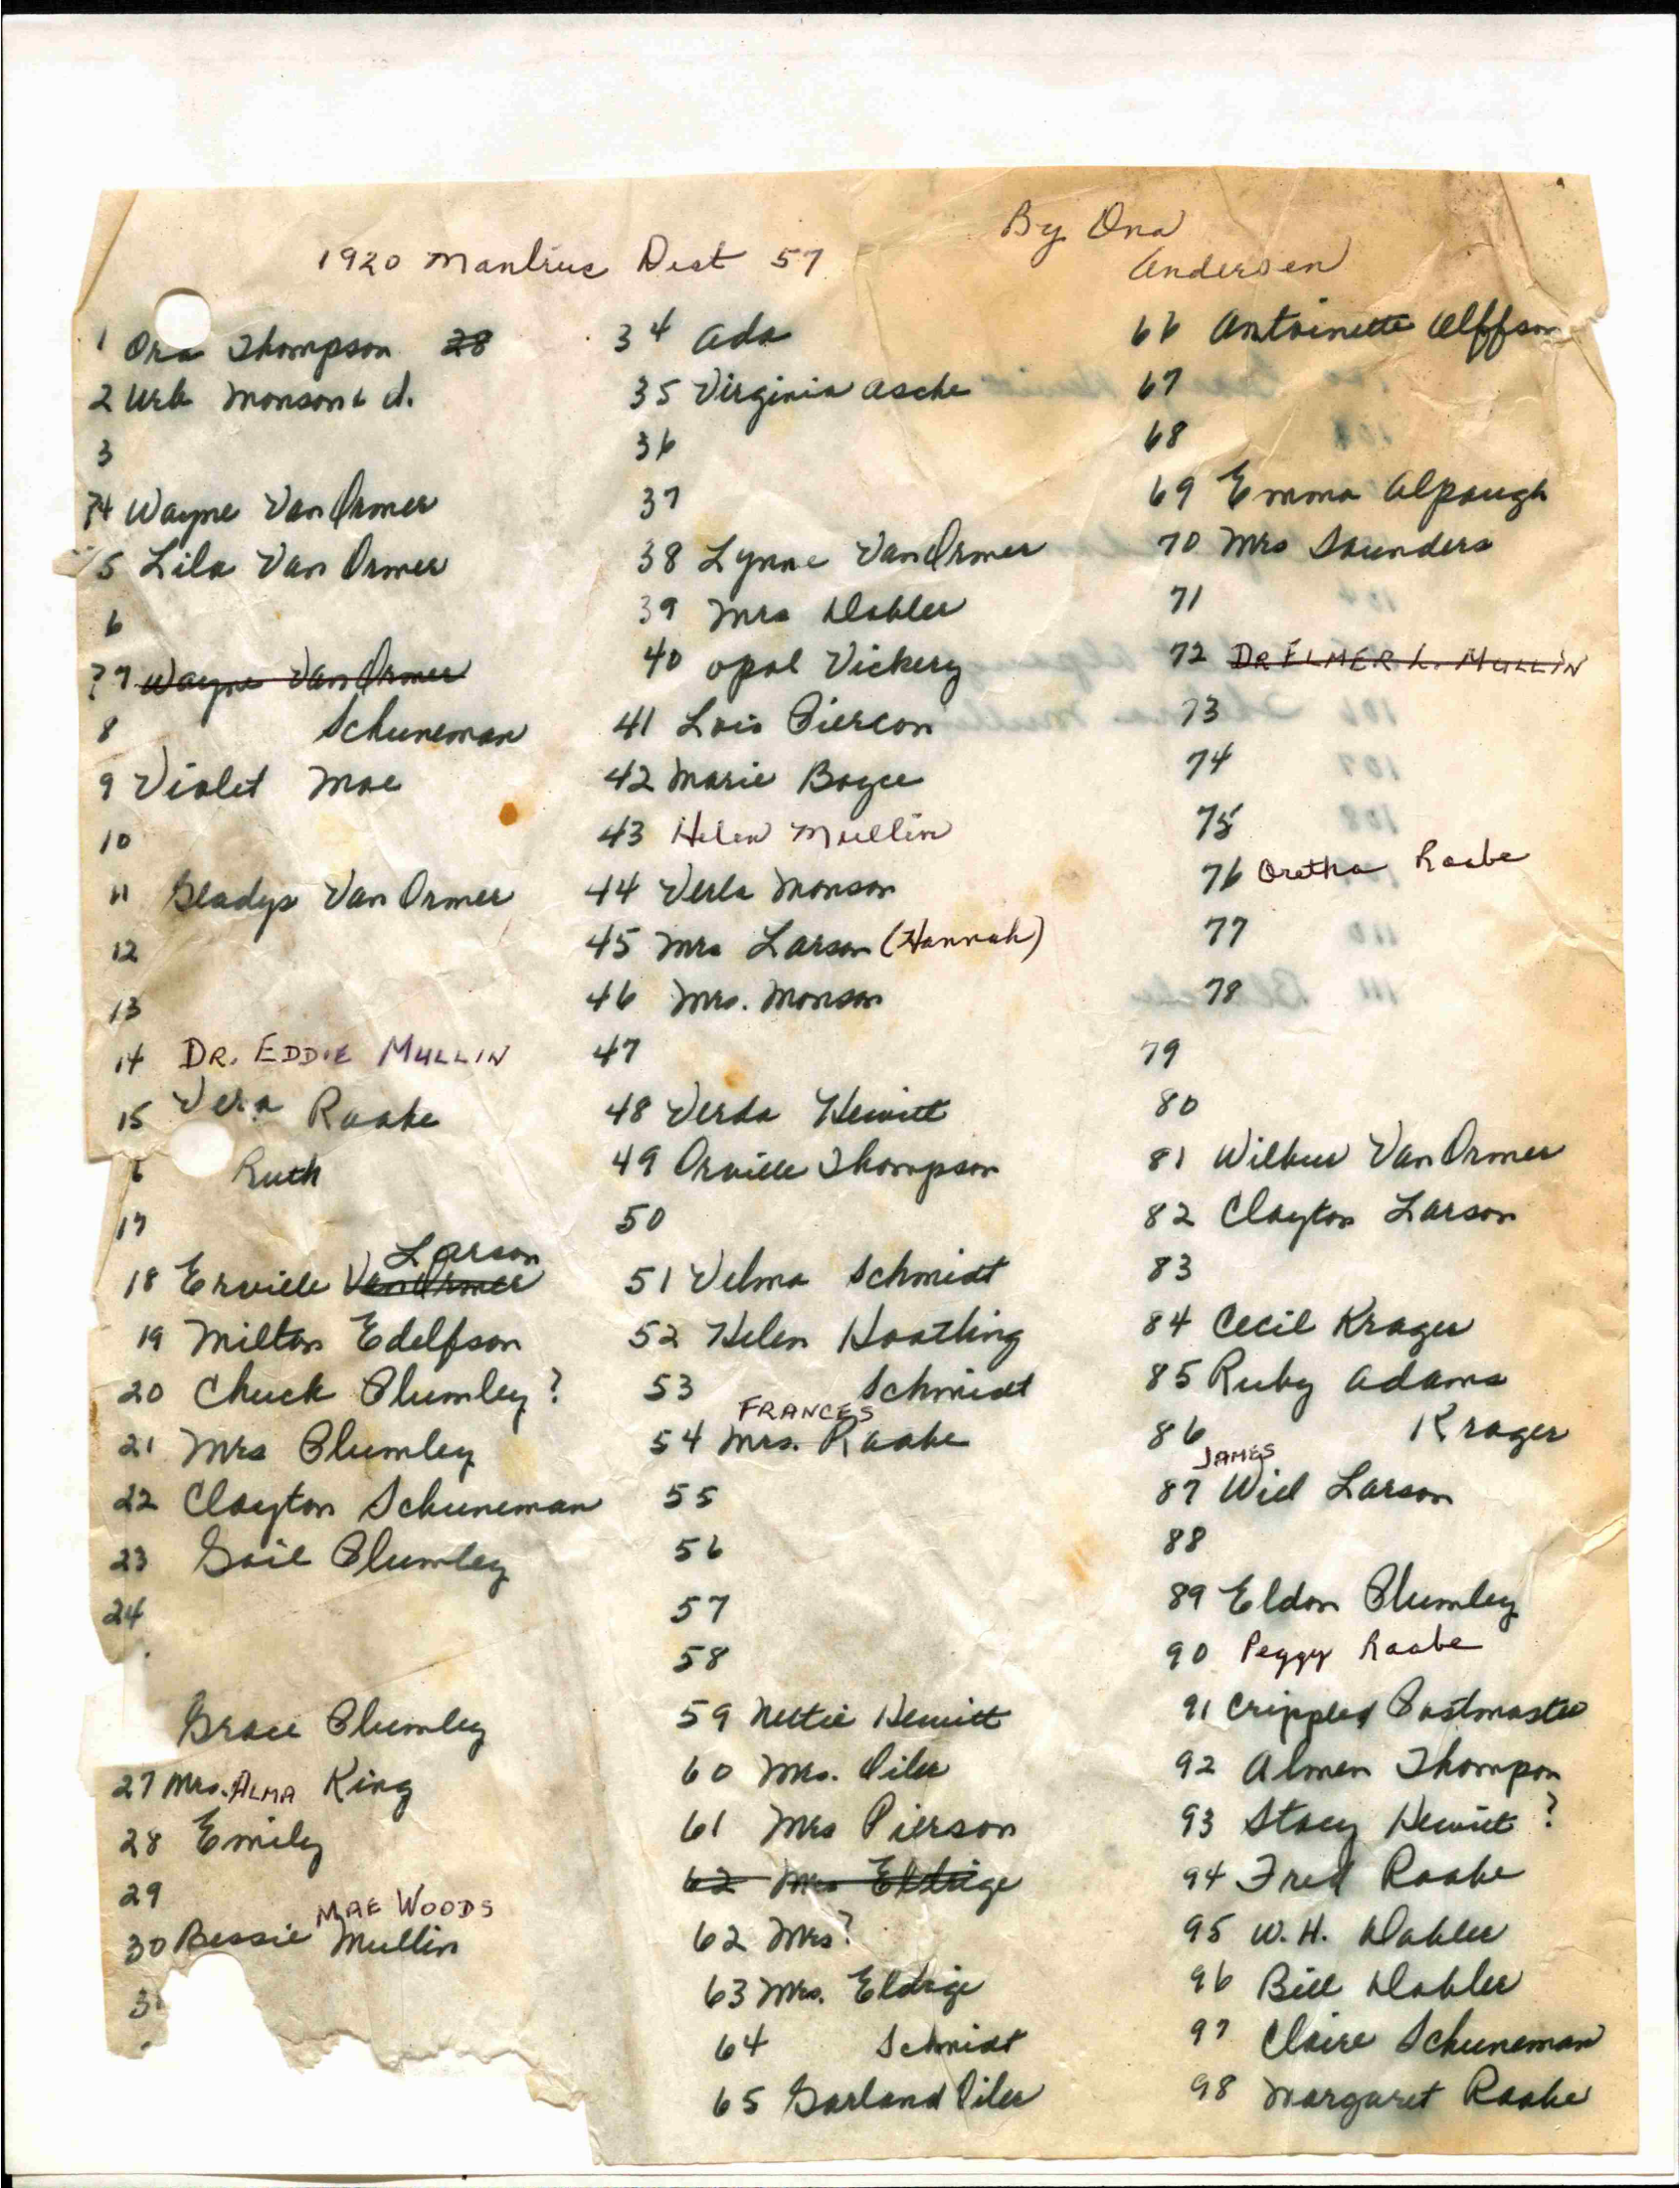 1920 Mantrue Dist 57
By Ona
Andersen
1 Ora Thompson ~~28~~
2 Urb Monson d.
3
4 Wayne VanOrmer
5 Lila Van Ormer
6
?7 ~~Wayne VanOrmer~~
8 Schuneman
9 Violet Moe
10
11 Gladys Van Ormer
12
13
14 DR. EDDIE MULLIN
15 Vera Raabe
6 Ruth
17
Larson
18 Erville ~~VanOrmer~~
19 Milton Edelfson
20 Chuck Plumley?
21 Mrs Plumley
22 Clayton Schuneman
23 Gail Plumley
24
Grace Plumley
27 Mrs. ALMA King
28 Emily
29
MAE WOODS
30 Bessie Mullin
3
34 Ada
35 Virginia Asche
36
37
38 Lynne VanOrmer
39 Mrs Dahler
40 Opal Vickery
41 Lois Pierson
42 Marie Boyce
43 Helen Mullin
44 Verla Monson
45 Mrs Larson (Hannah)
46 Mrs. Monson
47
48 Verda Hewitt
49 Orville Thompson
50
51 Velma Schmidt
52 Helen Hoatling
53 Schmidt
FRANCES
54 Mrs. Raabe
55
56
57
58
59 Nettie Hewitt
60 Mrs. Piler
61 Mrs Pierson
~~62 Mrs Eldrige~~
62 Mrs?
63 Mrs. Eldrige
64 Schmidt
65 Garland Piler
66 Antoinette Olffson
67
68
69 Emma Alpaugh
70 Mrs Saunders
71
72 ~~DR ELMER L. MULLIN~~
73
74
75
76 Oretha Raabe
77
78
79
80
81 Wilbur VanOrmer
82 Clayton Larson
83
84 Cecil Krager
85 Ruby Adams
86 Krager
JAMES
87 Will Larson
88
89 Eldon Plumley
90 Peggy Raabe
91 Crippled Postmaster
92 Almen Thompson
93 Stacy Hewitt?
94 Fred Raabe
95 W. H. Dahler
96 Bill Dahler
97 Claire Schuneman
98 Margaret Raabe